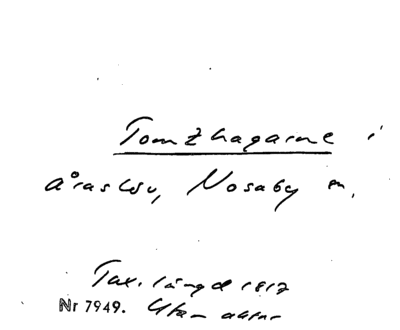 Tomthagarne i
åraslöv, Nosaby sn,
Tax. längd 1812
Nr 7949. Utan